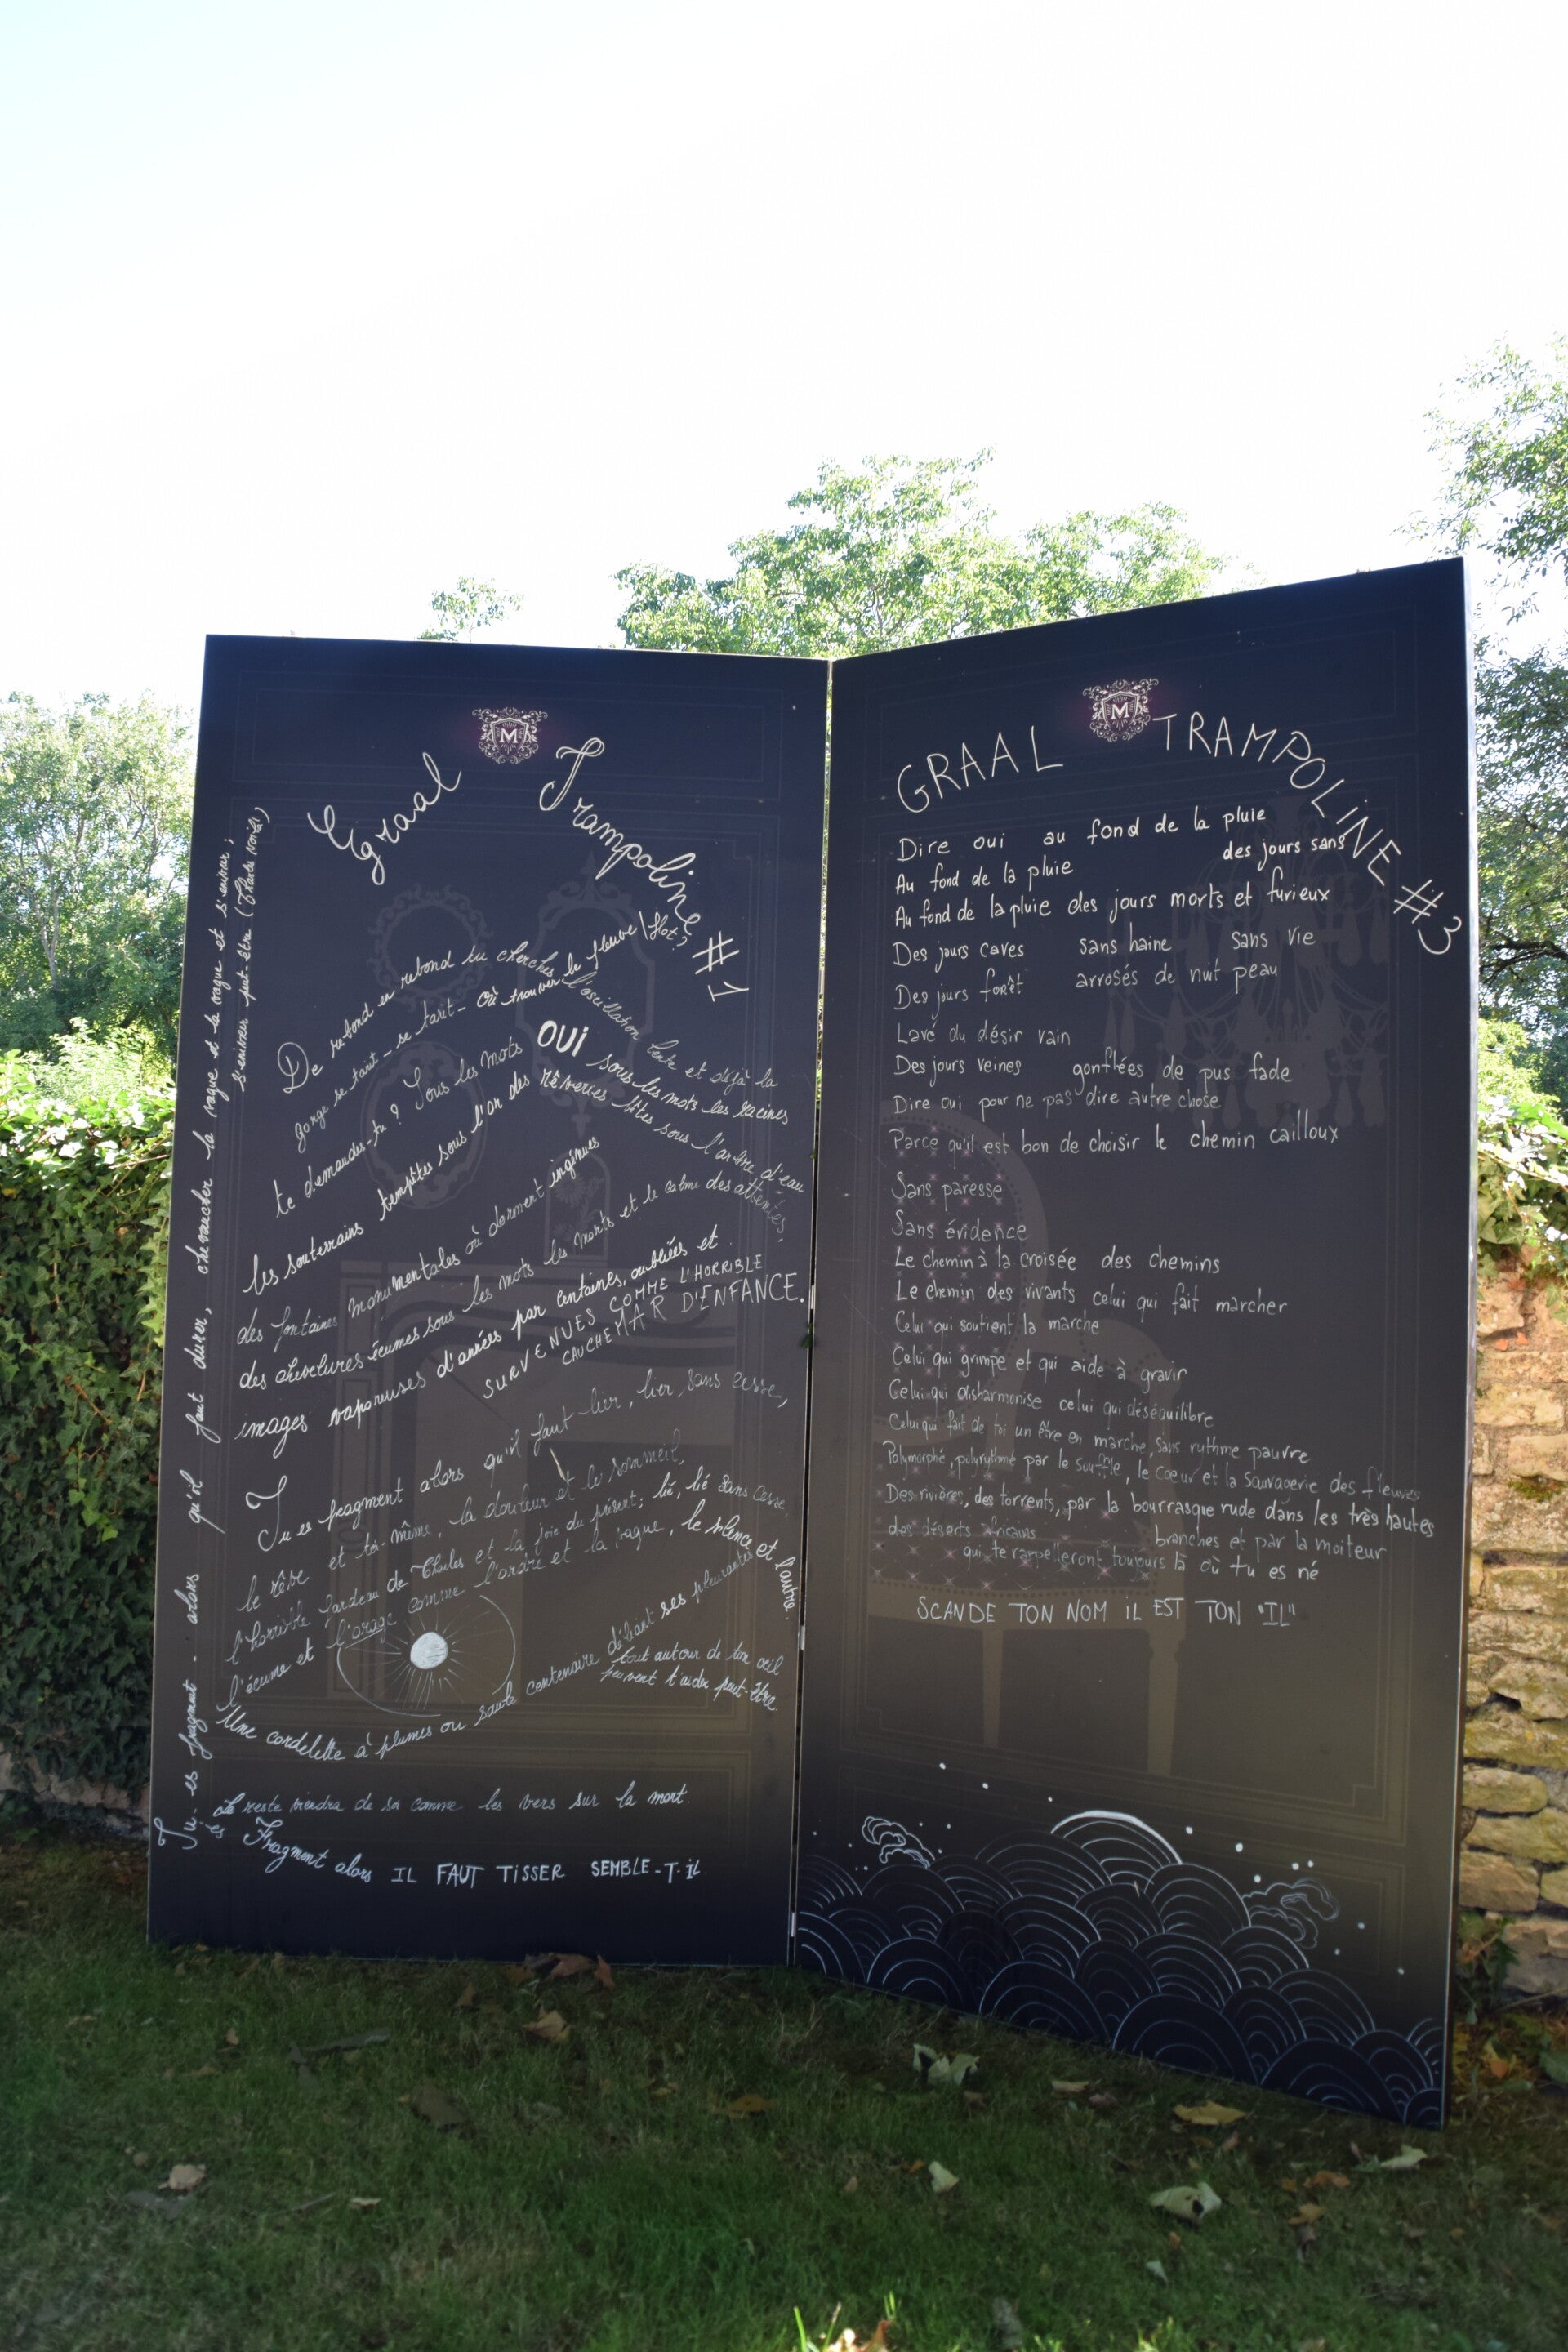 M
Graal Trampoline #1
De rebond en rebond tu cherches l'oscillation lente et déjà la
gorge se tait - se tarit - où trouver le fleuve/flot?
te demandes-tu? Sous les mots OUI sous les mots les racines
les souterrains tempêtes sous l'or des
sous l'arbre d'eau
des fontaines monumentales où dorment ingénues
des chevelures écumes sous les mots les morts et le calme des attentes,
images vaporeuses d'années par centaines, oubliées et
SURVENUES COMME L'HORRIBLE
CAUCHEMAR D'ENFANCE.
Tu es fragment alors qu'il faut lier, lier sans cesse,
le rêve et toi-même, la douleur et le sommeil,
l'horrible fardeau de Charles et la joie du présent; lié, lié sans cesse,
l'écume et l'orage comme l'ordre et la vague, le silence et l'autre.
Une cordelette à plumes ou saule centenaire déliant ses pleurantes
tout autour de ton œil
peuvent t'aider peut-être.
Le reste viendra de soi comme les vers sur la mort.
Tu es Fragment alors IL FAUT TISSER SEMBLE-T-IL.
Tu es fragment - alors qu'il faut durer, chevaucher la vague et la vague et s'enivrer;
s'enivrer peut-être (Charles voilà)
M
GRAAL TRAMPOLINE #3
Dire oui au fond de la pluie
des jours sans
Au fond de la pluie
Au fond de la pluie des jours morts et furieux
Des jours caves sans haine sans vie
Des jours forêt arrosés de nuit peau
Lavé du désir vain
Des jours veines gonflées de pus fade
Dire oui pour ne pas dire autre chose
Parce qu'il est bon de choisir le chemin cailloux
Sans paresse
Sans évidence
Le chemin à la croisée des chemins
Le chemin des vivants celui qui fait marcher
Celui qui soutient la marche
Celui qui grimpe et qui aide à gravir
Celui qui disharmonise celui qui déséquilibre
Celui qui fait de toi un être en marche, sans rythme pauvre
Polymorphé, polyrythmé par le , le cœur et la sauvagerie des fleuves
Des rivières, des torrents, par la bourrasque rude dans les très hautes
branches et par la moiteur
des déserts africains
qui te rappelleront toujours là où tu es né
SCANDE TON NOM IL EST TON "IL"